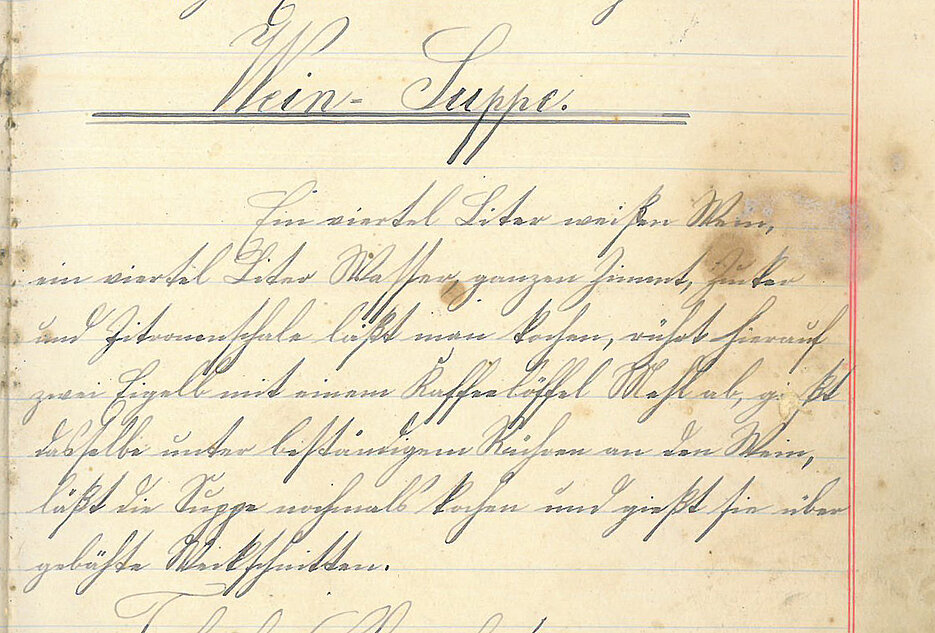 Wein-Suppe.
Ein viertel Liter weißen Wein,
ein viertel Liter Wasser, ganzen Zimmt, Zucker
und Zitronenschale läßt man kochen, rührt hierauf
zwei Eigelb mit einem Kaffeelöffel Mehl ab, gießt
dasselbe unter beständigem Rühren an den Wein,
läßt die Suppe nochmals kochen und gießt sie über
gebähte Weckschnitten.